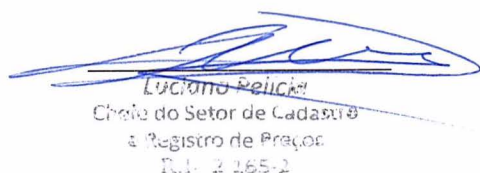 Luciano Pelicia
Chefe do Setor de Cadastro
e Registro de Preços